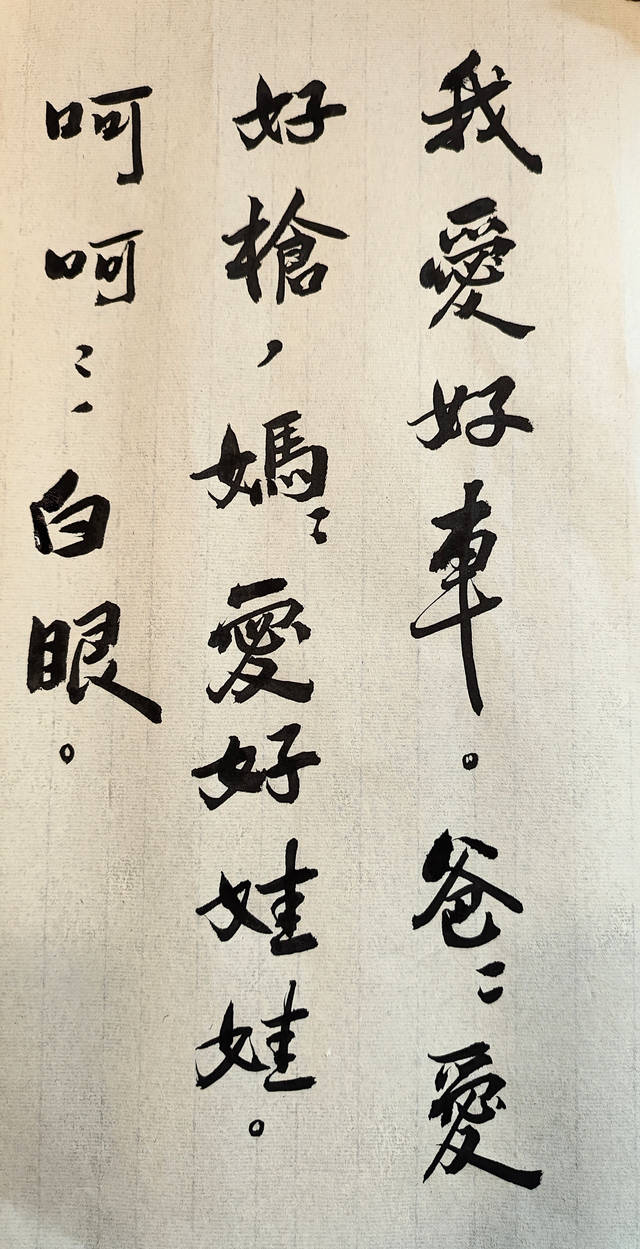 我愛好車。爸〻愛
好槍，媽〻愛好娃娃。
呵呵⋯白眼。